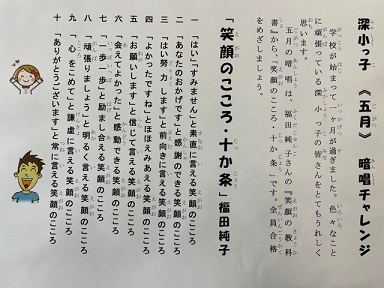 深小っ子 《五月》 暗唱チャレンジ
学校が始まって一ヶ月が過ぎました。色々なこと
に頑張っている深小っ子の皆さんをとてもうれしく
思います。
五月の暗唱は、福田純子さんの『笑顔の教科
書』から、「笑顔のこころ・十か条」です。全員合格
をめざしましょう。
「笑顔のこころ・十か条」 福田純子
一 「はい」「すみません」と素直に言える笑顔のこころ
二 「あなたのおかげです」と感謝のできる笑顔のこころ
三 「はい努力します」と前向きに言える笑顔のこころ
四 「よかったですね」とほほえみあえる笑顔のこころ
五 「お願いします」と信じて言える笑顔のこころ
六 「会えてよかった」と感動できる笑顔のこころ
七 「一歩一歩」と励まし合える笑顔のこころ
八 「頑張りましょう」と明るく言える笑顔のこころ
九 「心をこめて」と謙虚に言える笑顔のこころ
十 「ありがとうございます」と常に言える笑顔のこころ